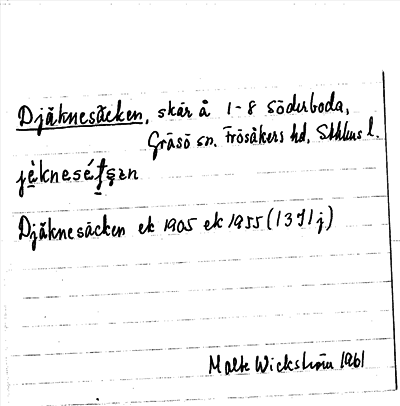 Djäknesäcken, skär å 1-8 Söderboda,
Gräsö sn. Frösåkers hd, Sthlms l.
Djäknesäcken ek 1905 ek 1955 (13 I 1 j)
Malte Wickström 1961